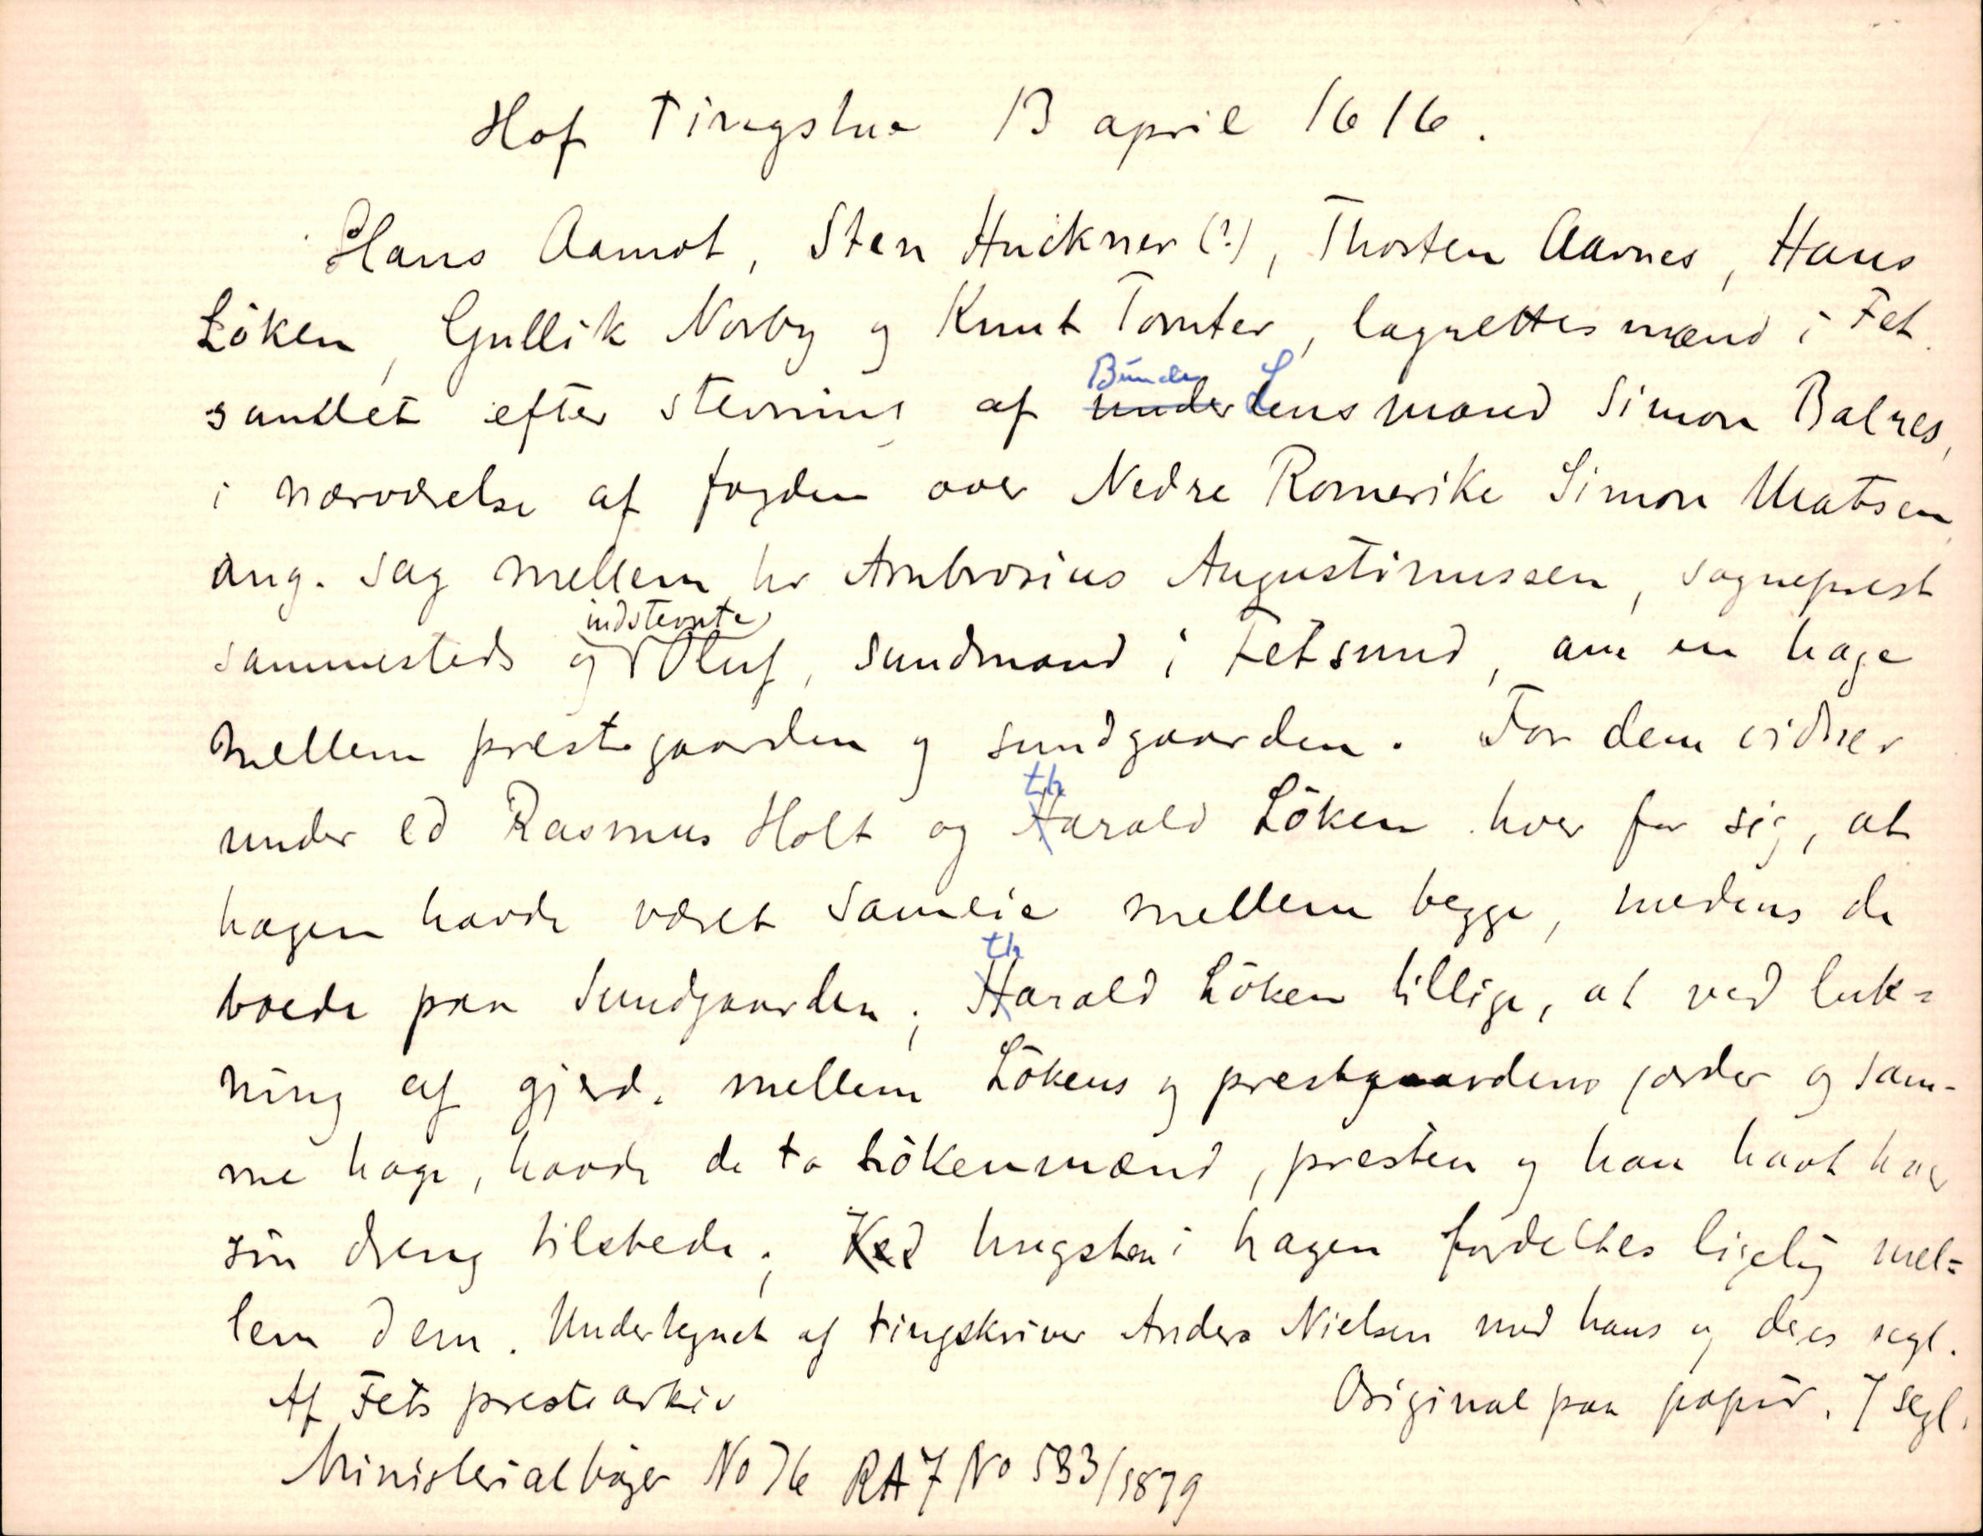 Hof Tingstue 13 april 1616.
Hans Aamot, Sten Huckner (?), Thorsten Aarnes, Hans
Löken, Gullik Norby og Knut Tomter, lagrettesmænd i Fet
samlet efter stevning af under Bunde Lensmand Simon Balnes,
i nærværelse af fogden over Nedre Romerike Simon Matsen
ang. sag mellem hr Ambrosius Augustinussen, sogneprest
sammesteds og indstevnte Oluf, sundmand i Fetsund, om en hage
mellem prestegaarden og sundgaarden. For dem vidner
under ed Rasmus Holt og Harald th Löken hver for sig, at
hagen havde været sameie mellem begge, medens de
boede paa Sundgaarden; Harald th Löken tillige, at ved luk=
ning af gjerde mellem Lökens og prestgaardens jorder og sam-
me hage, havde de to Lökenmænd, presten og han havt hver
sin dreng tilstede; Ved hugsten i hagen fordeltes ligelig mel=
lem dem. Undertegnet af tingskriver Anders Nielsen med hans og deres segl.
Af Fets prestearkiv Original paa papir. 7 segl.
Ministerialbøger No 76 RA 7 No 533/1879